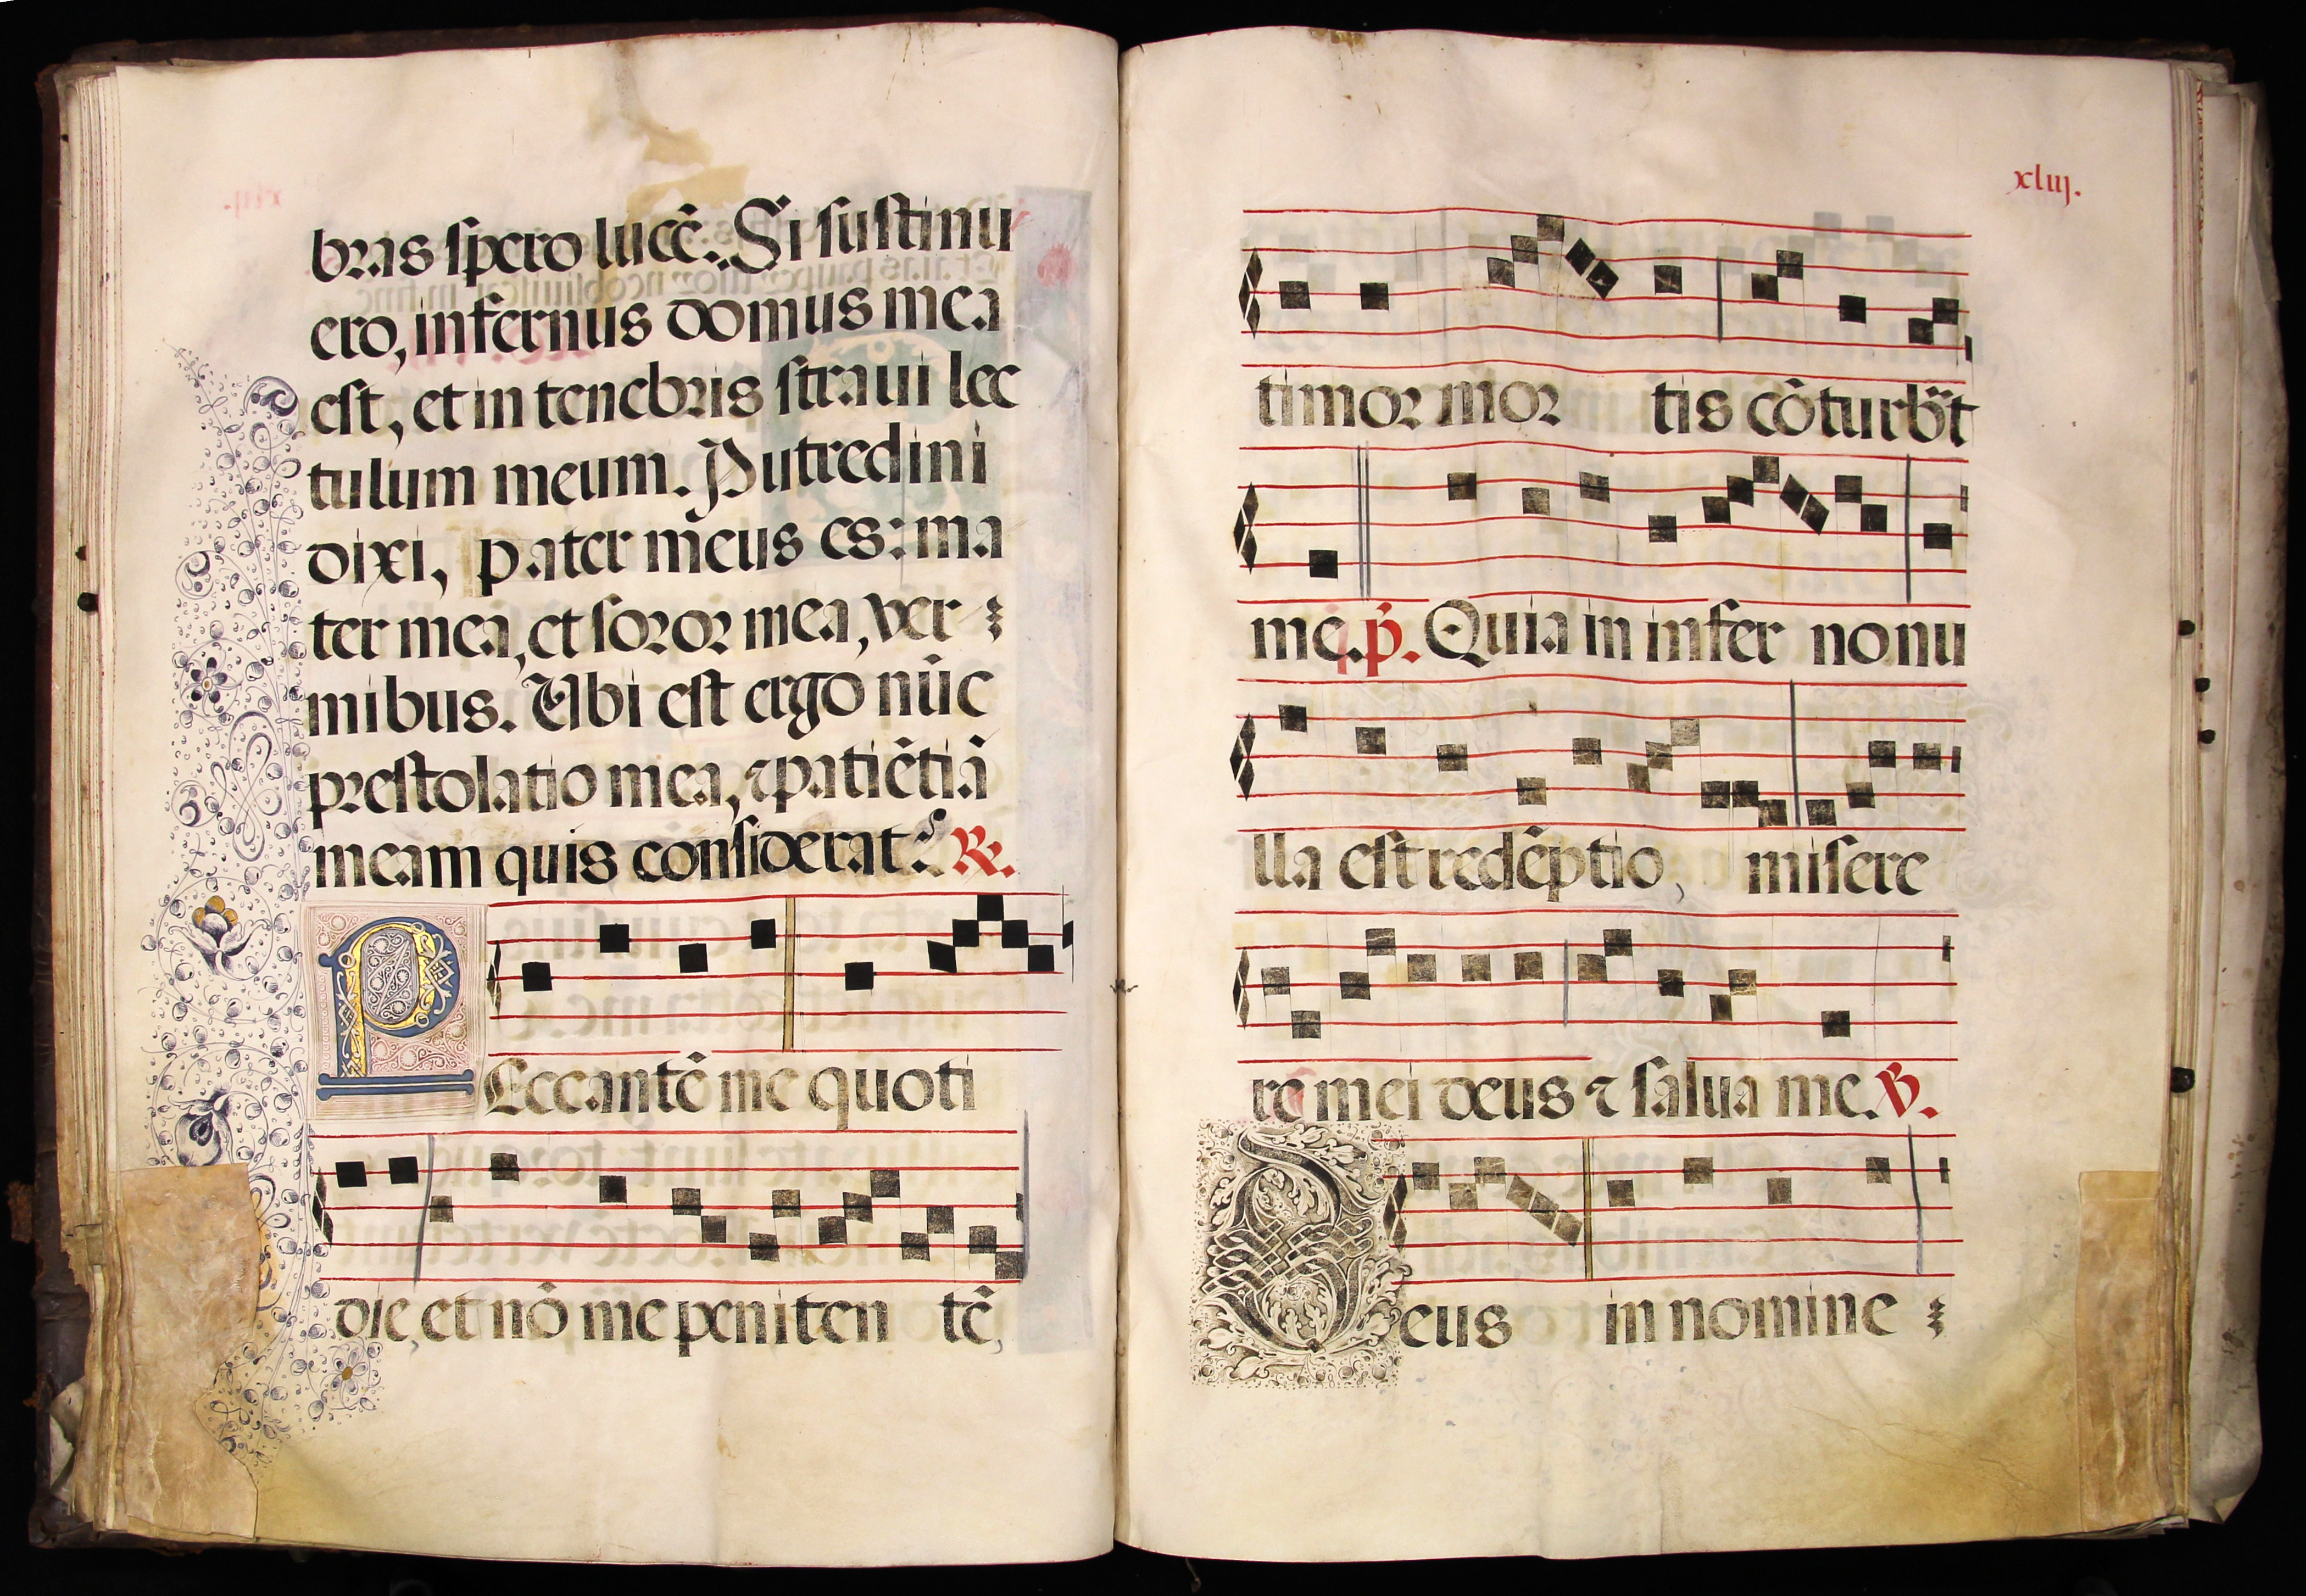 bras spero lucē. Si sustinu
ero, infernus domus mea
est, et in tenebris straui lec
tulum meum. Putredini
dixi, pater meus es: ma
ter mea, et soror mea, ver
mibus. Ubi est ergo nūc
prestolatio mea, ⁊ patiētiā
meam quis considerat? ℟.
PEccantē me quoti
die, et nō me peniten tē,
xliij.
timor mor tis cōturbāt
me. p̄. Quia in infer no nu
lla est redēptio, misere
re mei deus ⁊ salua me. ℣.
Deus in nomine